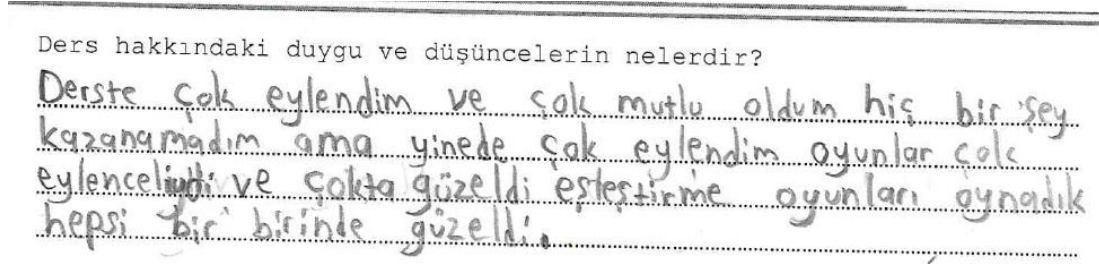 Ders hakkındaki duygu ve düşüncelerin nelerdir?
Derste çok eylendim ve çok mutlu oldum hiç bir şey
kazanamadım ama yinede çok eylendim oyunlar çok
eylenceliydi ve çokta güzeldi eşleştirme oyunları oynadık
hepsi bir birinde güzeldi.